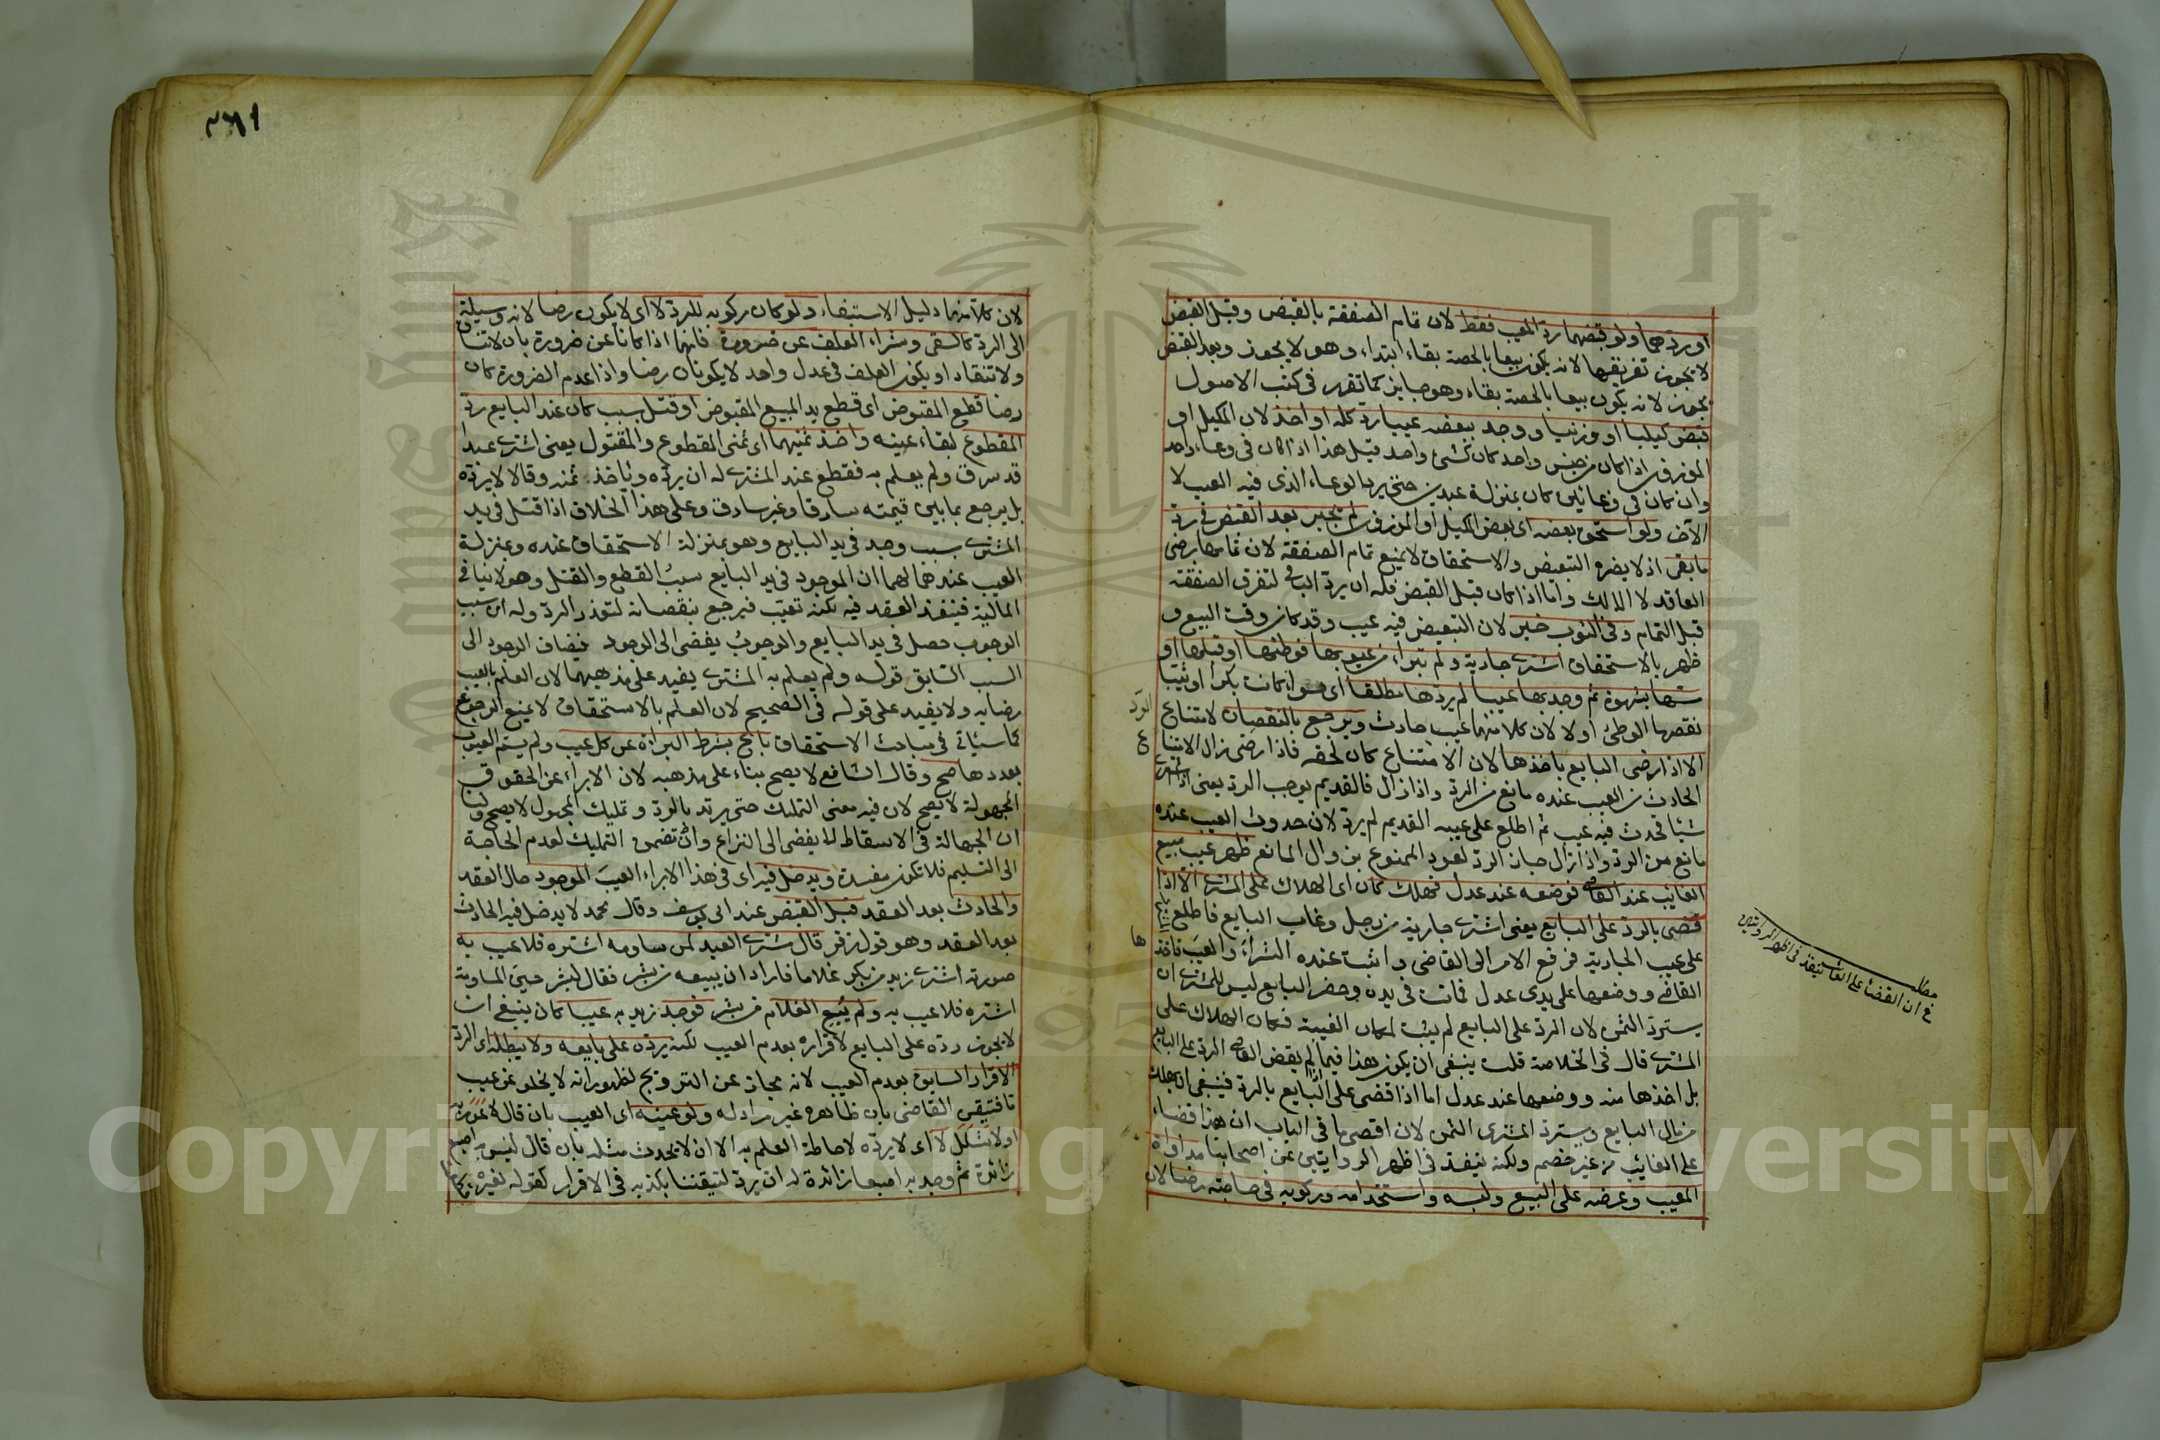 او ردهما ولو قبضهما رد المعيب فقط لان تمام الصفقة بالقبض وقبل القبض
لا يجوز تفريقها لانه يكون بيعا بالحصة بقاء ابتداء وهو لا يجوز وبعد القبض
يجوز لانه يكون بيعا بالحصة بقاء وهو جايز كما تقرر في كتب الاصول
قبض كيليا او وزنيا ووجد ببعضه عيبا رد كله او اخذ لان المكيل او
الموزون اذا كان من جنس واحد كان كشئ واحد قيل هذا اذا كان في وعاء واحد
وان كان في وعائين كان بمنزلة عبدين حتى يرد الوعاء الذي فيه العيب لا
الآخر ولو استحق بعضه اي بعض المكيل او الموزون لم يخير بعد القبض في رد
ما بقى اذ لا يضره التبعيض والاستحقاق لا يمنع تمام الصفقة لان تمامها برضى
العاقد لا المالك واما اذا كان قبل القبض فله ان يرد الباقى لتفرق الصفقة
قبل التمام وفي الثوب خير لان التبعيض فيه عيب وقد كان وقت البيع و
ظهر بالاستحقاق اشترى جارية ولم تبراء من عيوبها فوطئها او قبلها او
مسها بشهوة ثم وجد بها عيبا لم يردها مطلقا اي سواء كانت بكرا او ثيبا
نقصها الوطئ اولا لان كلا منهما عيب حادث ويرجع بالنقصان لامتناع
الرد
الا اذا رضى البايع باخذها لان الامتناع كان لحقه فاذا رضى زال الامتناع
الحادث من العيب عنده مانع من الرد واذا زال فالقديم يوجب الرد يعنى اذا اشترى
شيئا فحدث فيه عيب ثم اطلع على عيبه القديم لم يرد لان حدوث العيب عنده
مانع من الرد واذا زال جاز الرد لعود الممنوع بزوال المانع ظهر عيب مبيع
الغايب عند القاضى فوضعه عند عدل فهلك كان اي الهلاك على المشترى الا اذا
قضى بالرد على البايع يعنى اشترى جارية من رجل وغاب البايع فاطلع
على عيب الجارية فرفع الامر الى القاضى واثبت عنده الشراء والعيب فاخذها
القاضى ووضعها على يدى عدل فماتت في يده وحضر البايع ليس للمشترى ان
يسترد الثمن لان الرد على البايع لم يثبت لمكان الغيبة فكان الهلاك على
المشترى قال في الخلاصة قلت ينبغى ان يكون هذا فيما اذا لم يقض القاضى الرد على البايع
بل اخذها منه ووضعها عند عدل اما اذا قضى على البايع بالرد فينبغى ان يهلك
من مال البايع ويسترد المشترى الثمن لان اقصى ما في الباب ان هذا قضاء
على الغايب من غير خصم ولكنه ينفذ في اظهر الروايتين عن اصحابنا مداواة
المعيب وعرضه على البيع ولبسه واستخدامه وركوبه في حاجته رضا لان
مطلب
في ان القضاء على الغائب ينفذ في اظهر الروايتين
لان كلا منها دليل الاستبقاء ولو كان ركوبه للرد لا اي لا يكون رضا لانه وسيلة
الى الرد كالسقى وشراء العلف عن ضرورة فانهما اذا كانا عن ضرورة بان لا تنساق
ولا تنقاد او يكون العلف في عدل واحد لا يكونان رضا واذا عدم الضرورة كان
رضا قطع المقبوض اي قطع يد المبيع المقبوض او قتل بسبب كان عند البايع رد
المقطوع لبقاء عينه واخذ ثمنيهما اي ثمنى المقطوع والمقتول يعنى اشترى عبدا
قد سرق ولم يعلم به فقطع عند المشترى له ان يرده وياخذ ثمنه وقالا لا يرده
بل يرجع بما بين قيمته سارقا وغير سارق وعلى هذا الخلاف اذا قتل في يد
المشترى بسبب وجد في يد البايع وهو بمنزلة الاستحقاق عنده وبمنزلة
العيب عندهما لهما ان الموجود في يد البايع سبب القطع والقتل وهو لا ينافي
المالية فينفذ العقد فيه لكنه تعيب فيرجع بنقصانه لتعذر الرد وله ان سبب
الوجوب حصل في يد البايع والوجوب يفضى الى الوجود فيضاف الوجود الى
السبب السابق قوله ولم يعلم به المشترى يفيد على مذهبهما لان العلم بالعيب
رضا به ولا يفيد على قوله في الصحيح لان العلم بالاستحقاق لا يمنع الرجوع
كما سيأتي في مباحث الاستحقاق باع بشرط البراءة عن كل عيب ولم يسم العيوب
بعددها صح وقال الشافعى لا يصح بناء على مذهبه لان الابراء عن الحقوق
المجهولة لا يصح لان فيه معنى التمليك حتى يرتد بالرد وتمليك المجهول لا يصح ولنا
ان الجهالة في الاسقاط لا يفضى الى النزاع وان تضمن التمليك لعدم الحاجة
الى التسليم فلا تكون مفسدة ويدخل فيه اي في هذا الابراء العيب الموجود حال العقد
والحادث بعد العقد قبل القبض عند ابى يوسف وقال محمد لا يدخل فيه الحادث
بعد العقد وهو قول زفر قال مشترى العبد لمن ساومه اشتره فلا عيب به
صورته اشترى زيد من بكر غلاما فاراد ان يبيعه من بشر فقال لبشر حين المساومة
اشتره فلا عيب به ولم يبع الغلام من بشر فوجد زيد به عيبا كان ينبغى ان
لا يجوز رده على البايع لاقراره بعدم العيب لكنه يرده على بايعه ولا يبطله اي الرد
الاقرار السابق بعدم العيب لانه مجاز عن الترويج لظهور انه لا يخلو عن عيب
ما فتيقن القاضى بان ظاهره غير مراد له ولو عينه اي العيب بان قال لا عور به
او لا شلل لا اي لا يرده لاحاطة العلم به الا ان لا يحدث مثله بان قال ليس به اصبع
زائدة ثم وجد به اصبعا زائدة له ان يرد لتيقننا بكذبه في الاقرار كقوله لغيره
Copyright © King Saud University